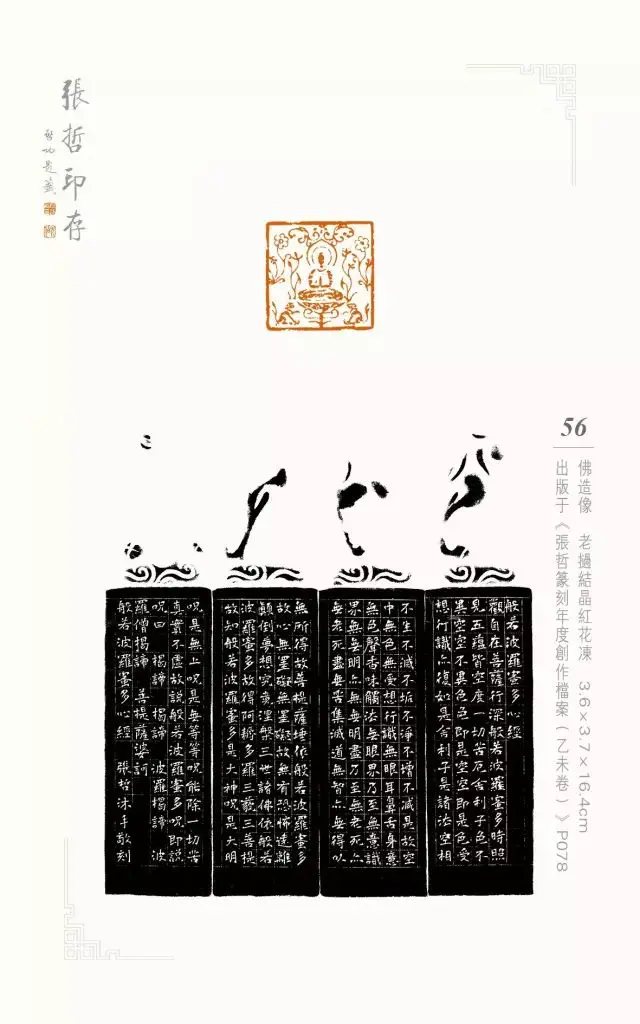 張哲印存
啓功題簽
56
佛造像 老撾結晶紅花凍 3.6×3.7×16.4cm
出版于《張哲篆刻年度創作檔案（乙未卷）》P078
般若波羅蜜多心經
觀自在菩薩行深般若波羅蜜多時照
見五蘊皆空度一切苦厄舍利子色不
異空空不異色色即是空空即是色受
想行識亦復如是舍利子是諸法空相
不生不滅不垢不淨不增不減是故空
中無色無受想行識無眼耳鼻舌身意
無色聲香味觸法無眼界乃至無意識
界無無明亦無無明盡乃至無老死亦
無老死盡無苦集滅道無智亦無得以
無所得故菩提薩埵依般若波羅蜜多
故心無罣礙無罣礙故無有恐怖遠離
顛倒夢想究竟涅槃三世諸佛依般若
波羅蜜多故得阿耨多羅三藐三菩提
故知般若波羅蜜多是大神呪是大明
呪是無上呪是無等等呪能除一切苦
真實不虛故說般若波羅蜜多呪即說
呪曰 揭諦 揭諦 波羅揭諦 波
羅僧揭諦 菩提薩婆訶
般若波羅蜜多心經 張哲沐手敬刻